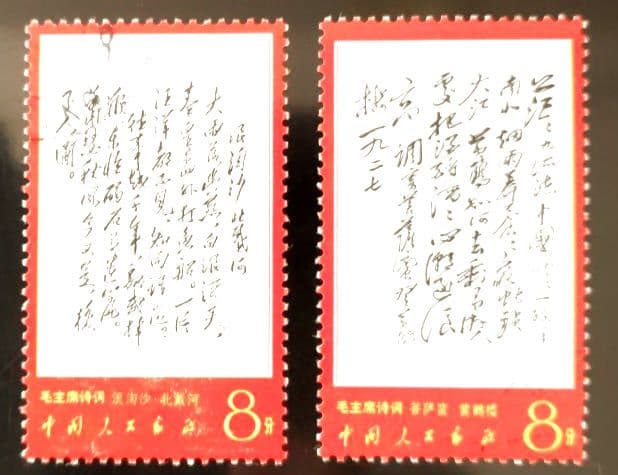 浪淘沙 北戴河
大雨落幽燕 白浪滔天
秦皇岛外打鱼船。一片
汪洋都不见 知向谁边
往事越千年 魏武挥
鞭 东临碣石有遗篇。
萧瑟秋风今又是 换
了人间。
毛主席诗词 浪淘沙·北戴河
中国人民邮政
8分
茫茫九派流中国 沉沉一线穿
南北 烟雨莽苍苍 龟蛇锁
大江 黄鹤知何去 剩有游人
处 把酒酹滔滔 心潮逐浪
高 调寄菩萨蛮 登黄鹤
楼 一九二七
毛主席诗词 菩萨蛮 黄鹤楼
中国人民邮政
8分